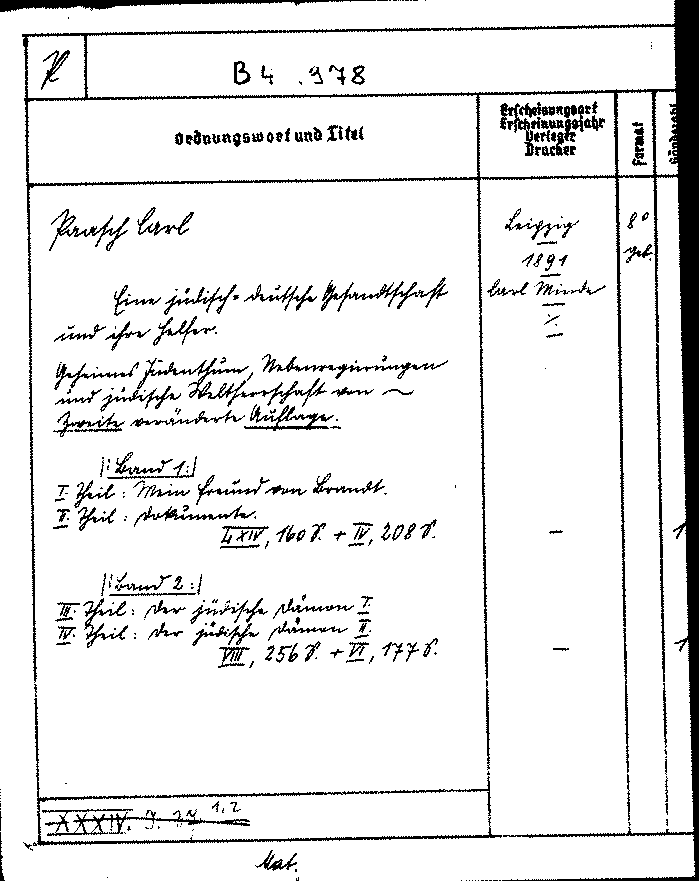 B4.978
Ordnungswort und Titel
Erscheinungsort
Erscheinungsjahr
Verleger
Drucker
Format
Paasch Carl
Leipzig
8°
1891
geb.
Carl Minde
Eine jüdisch-deutsche Gesandtschaft
und ihre Helfer.
Geheimes Judenthum, Nebenregierungen
und jüdische Weltherrschaft von ~
Zweite veränderte Auflage.
|:Band 1:|
I. Theil: Mein Freund von Brandt.
II. Theil: Dokumente.
XIV, 160 S. + IV, 208 S. — 1
|:Band 2:|
III. Theil: Der jüdische Dämon I.
IV. Theil: Der jüdische Dämon II.
VIII, 256 S. + VI, 177 S. — 1
XXXIV. J. 1.2
Kat.